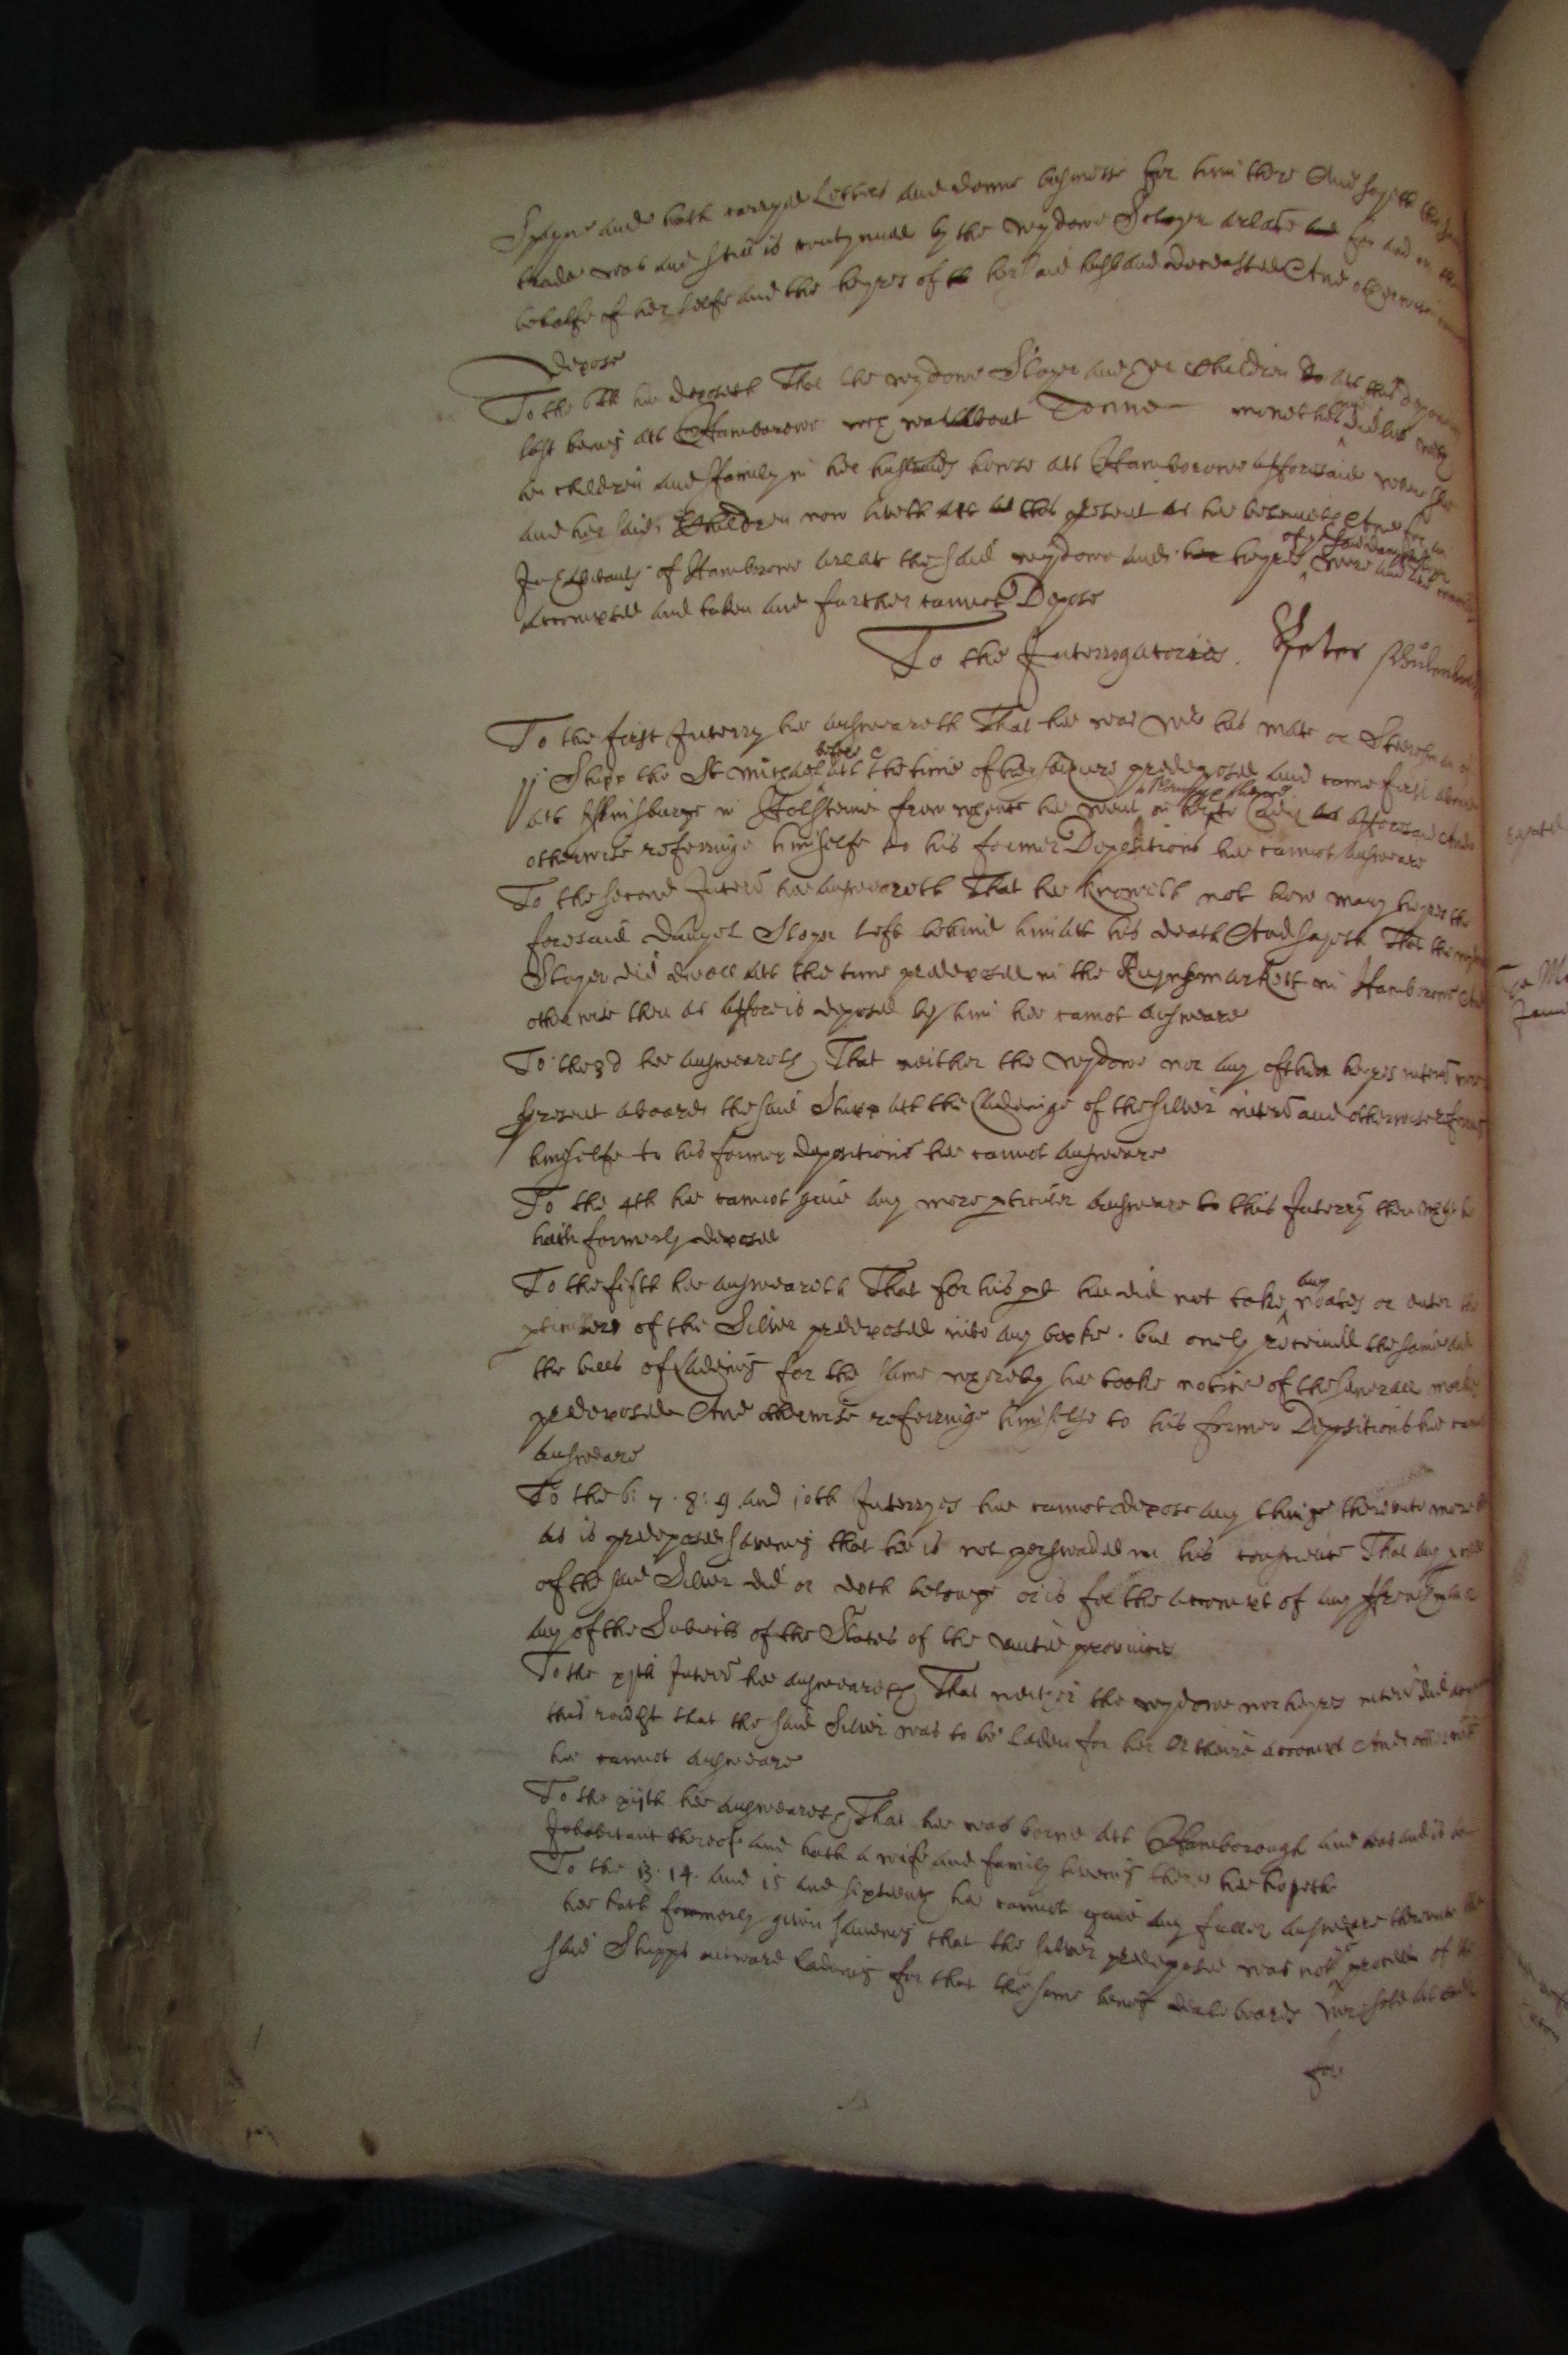 Spayne and hath carryed Letters and donne businesse for him there And sayeth the same
trade was and still is contynued by the wydowe Sloyer arlate for and on the
behalfe of her selfe and the heyres of her said husband deceased And otherwise cannot
depose
To the 6th hee deposeth That the wydowe Sloyer and her Children att this deponents
last being att Hamborowe wch was about Tenne monethes did live with
her children and ffamily in her husbands howse att Hamborowe afforesaid where shee
and her said Children now liveth att this present as hee beleiveth And for
Inhabitants of Hamborowe arlate the said wydowe and heyres of ye said Danyell Sloyer were and are commonly
accompted and taken and further cannot Depose
To the Interrogatories. Peter
To the first Interry hee answeareth That hee was wth his mate or Steersman of
ye Shipp the St Michael before the time of her seizure predeposed and came first aboard
att fflensburge in Holsteine from whence hee went in her to Cadiz afforesaid And
otherwise referringe himselfe to his former Depositions hee cannot answeare
To the second Interr hee answeareth That hee knoweth not how many heyres the
foresaid Danyel Sloyer left behind him att his death And sayeth That the wydowe
Sloyer did dwell att the time predeposed in the markett in Hamborowe And
otherwise then as afore is deposed by him hee cannot answeare
To the 3d hee answeareth That neither the wydowe nor any of their heyres interr were
present aboard the said Shipp att the Ladeinge of the silver interr and otherwise referring
himselfe to his former depositions hee cannot answeare
To the 4th hee cannot give any more pticuler answeare to this Interry then wht he
hath formerly deposed
To the fifth hee answeareth That for his pt hee did not take any noates or enter the
pticulers of the Silver predeposed into any booke. but onely received the same and
the bills of Ladeing for the same whereby hee tooke notice of the severall markes
predeposed And otherwise referringe himselfe to his former Depositions hee cannot
answeare
To the 6: 7. 8: 9. and 10th Interryes hee cannot depose any thinge thereunto more then
as is predeposed saveing that hee is not perswaded in his conscience That any
of the said Silver did or doth belonge or is for the accompt of any ffrenchman or
any of the Subiects of the States of the united provinces
To the xjth Interr hee answeareth That neither the wydowe nor heyres interr did
this rendt that the said Silver was to be laden for her or theire accompt And otherwise
hee cannot answeare
To the xijth hee answeareth That hee was borne att Hamborough and was and is an
Inhabitant thereof and hath a wife and family liveing there hee hopeth
To the 13. 14. and 15 and sixteenth hee cannot give any fuller answeare thereunto then
hee hath formerly given saveing that the silver predeposed was not ye proceede of the
said Shipps outward ladeing for that the same being deale boards were sold att Cadiz
for